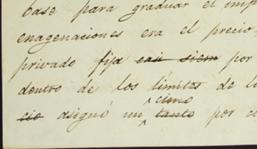 base para graduar el imp
enagenaciones era el precio
privado fija casi siem por
dentro de los límites de l
cio
asignó un tanto por c